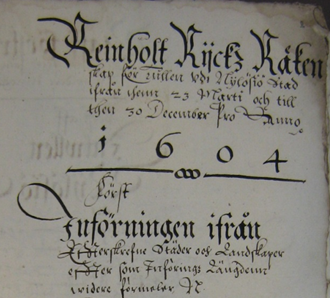 Reinholt Rijckz Räken
skap för tullen vdi Nylösö Stad
ifrån then 23 Marti och till
then 30 December Pro Anno
1604
Först
Införningen ifrån
Effterskrefne Städer och Landskaper
effter som Införnings Längdenn
widere förmeler N